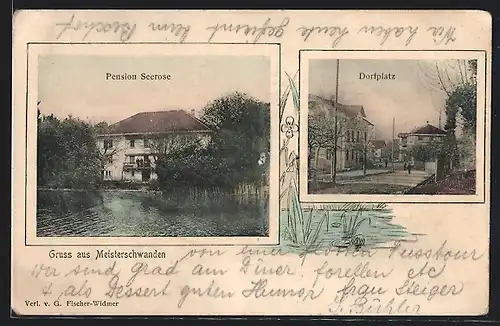 Wir haben heute gespeist beim Bischof
Pension Seerose
Dorfplatz
Gruss aus Meisterschwanden
von einer Fusstour
wir sind grad am Diner. forellen etc
& als Dessert guten Humor frau Steiger
S. Bühler
Verl. v. G. Fischer-Widmer